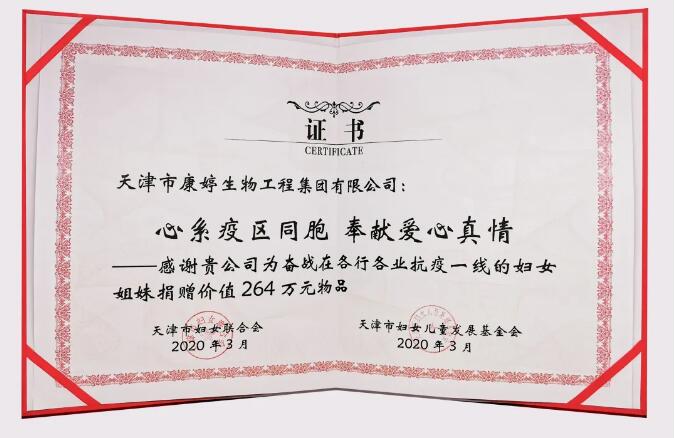 证书
CERTIFICATE
天津市康婷生物工程集团有限公司：
心系疫区同胞 奉献爱心真情
——感谢贵公司为奋战在各行各业抗疫一线的妇女
姐妹捐赠价值264万元物品
天津市妇女联合会
2020年3月
天津市妇女儿童发展基金会
2020年3月